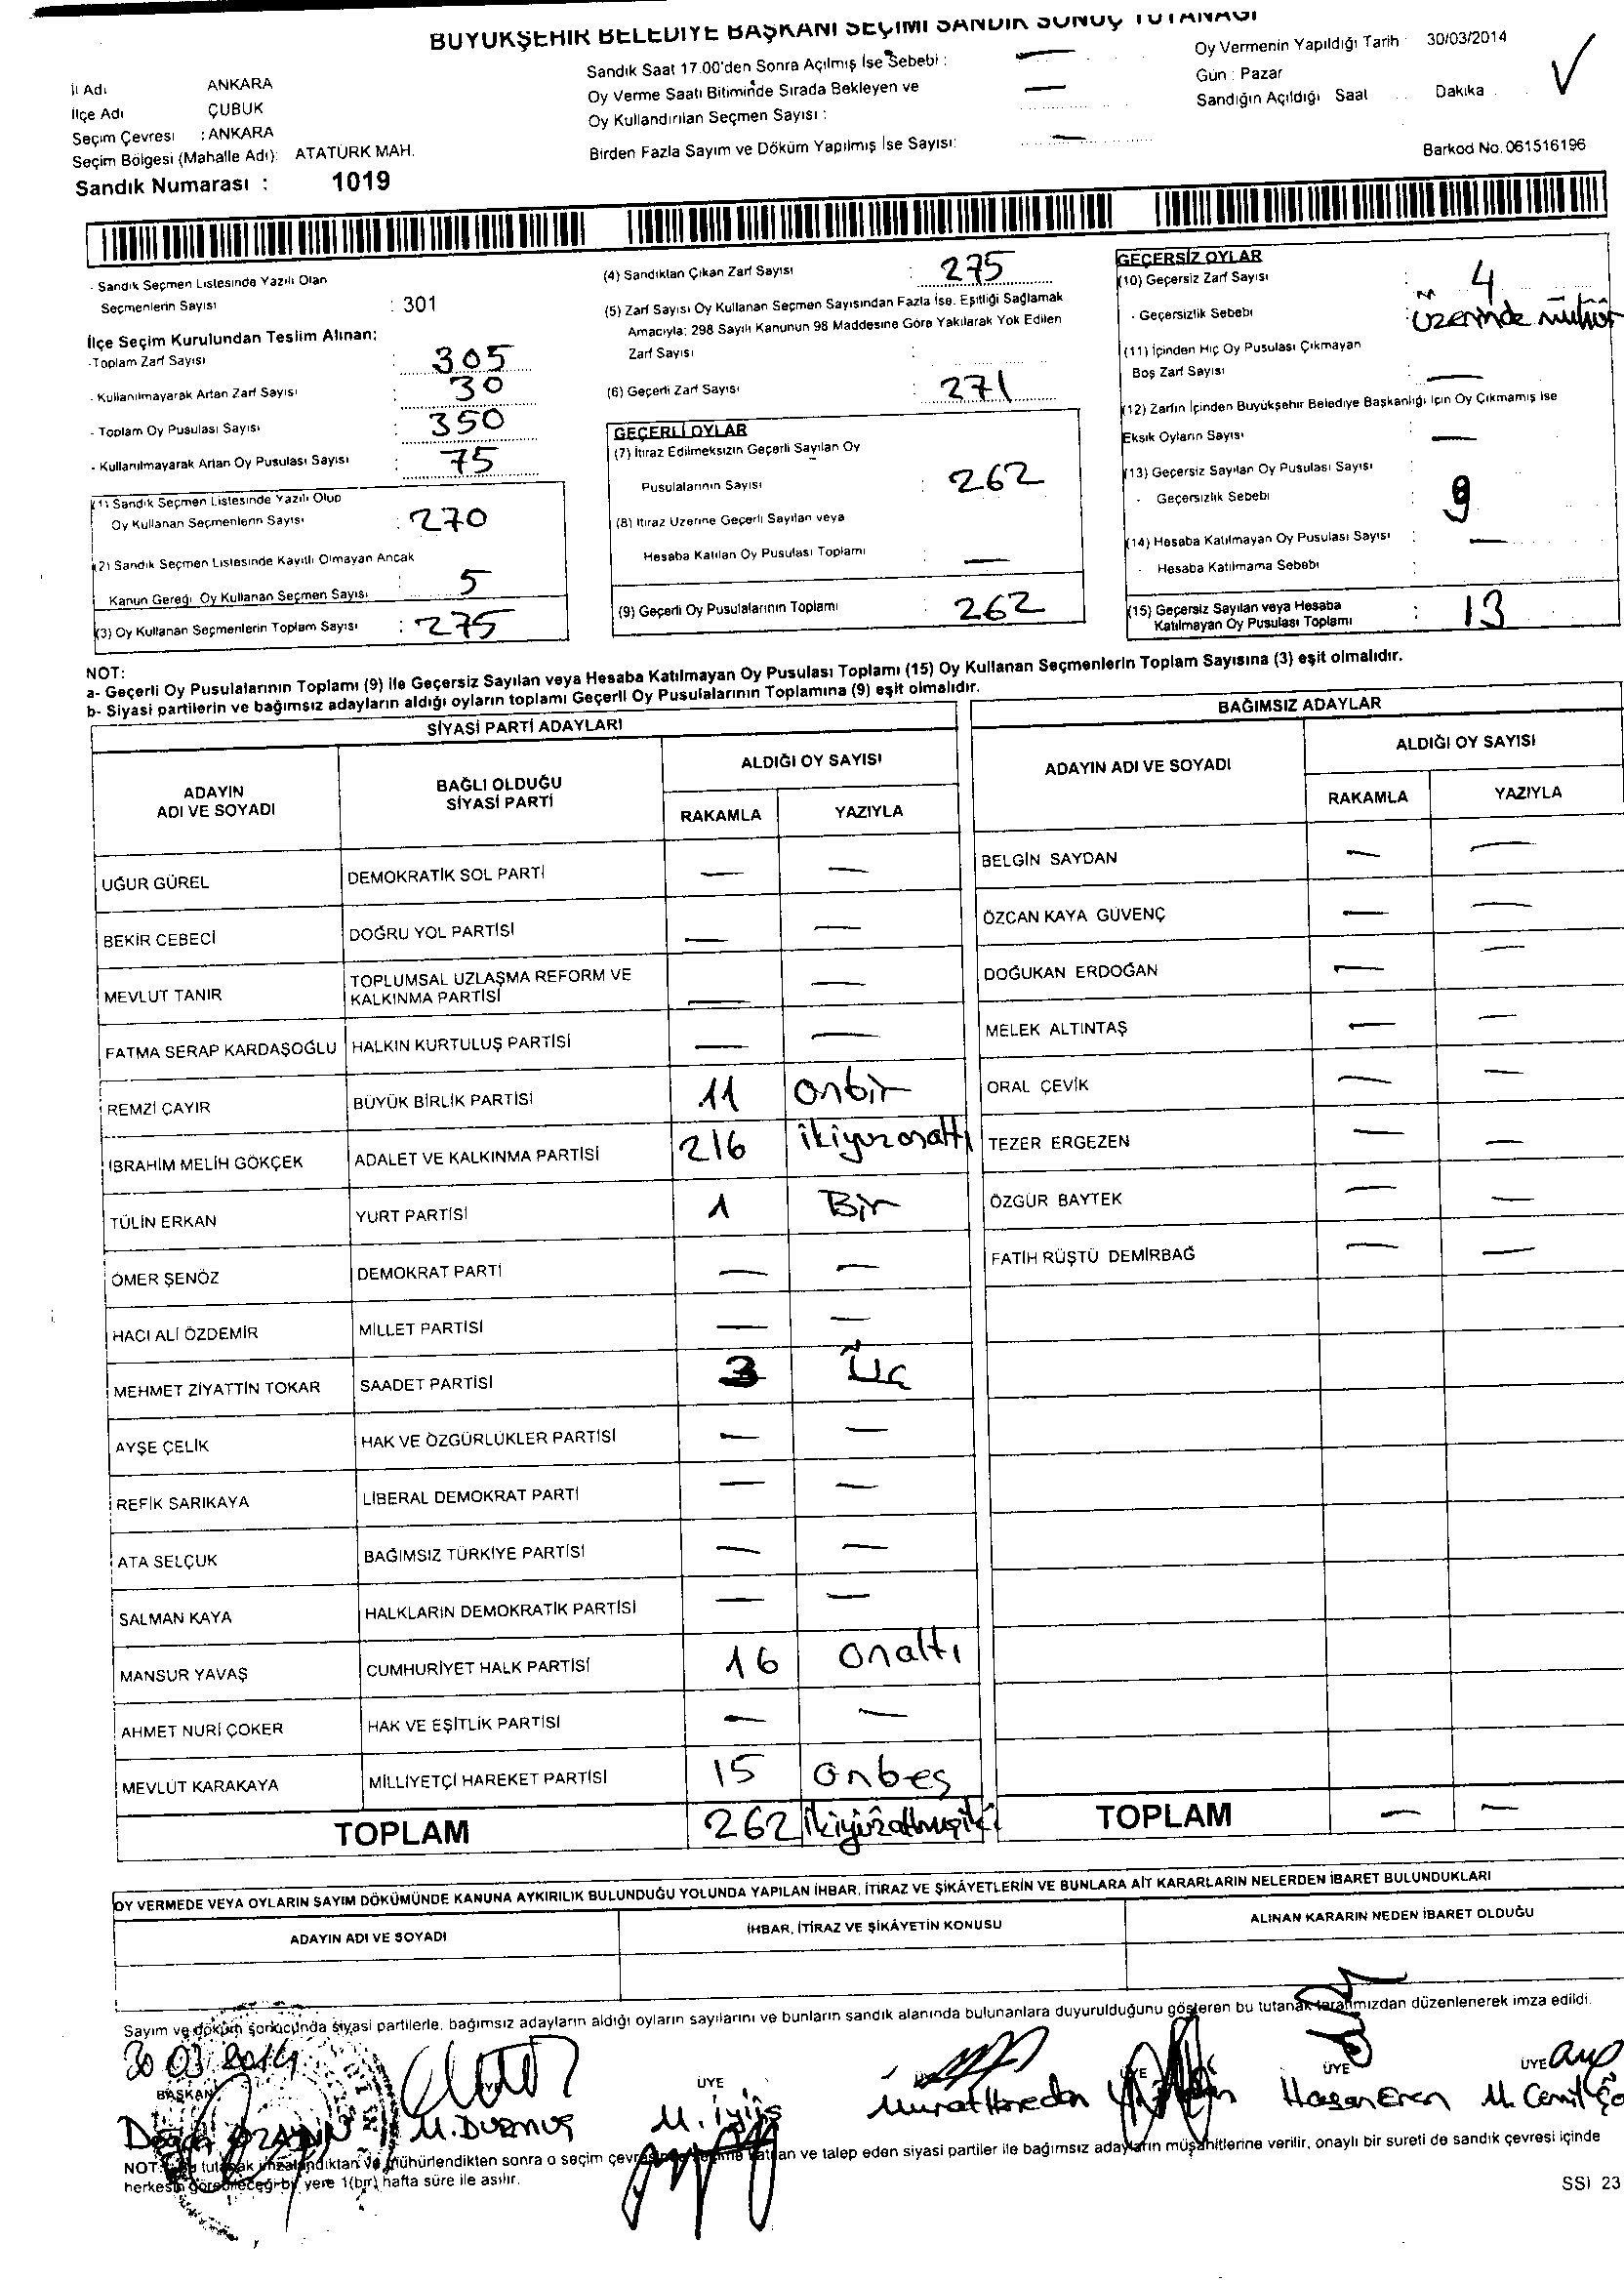 BÜYÜKŞEHİR BELEDİYE BAŞKANI SEÇİMİ SANDIK SONUÇ TUTANAĞI
İl Adı ANKARA
İlçe Adı ÇUBUK
Seçim Çevresi : ANKARA
Seçim Bölgesi (Mahalle Adı): ATATÜRK MAH.
Sandık Numarası : 1019
Sandık Saat 17.00'den Sonra Açılmış İse Sebebi : —
Oy Verme Saati Bitiminde Sırada Bekleyen ve
Oy Kullandırılan Seçmen Sayısı : —
Birden Fazla Sayım ve Döküm Yapılmış İse Sayısı: —
Oy Vermenin Yapıldığı Tarih : 30/03/2014
Gün : Pazar
Sandığın Açıldığı Saat .. Dakika .
Barkod No. 061516196
- Sandık Seçmen Listesinde Yazılı Olan
Seçmenlerin Sayısı : 301
İlçe Seçim Kurulundan Teslim Alınan:
-Toplam Zarf Sayısı : 305
- Kullanılmayarak Artan Zarf Sayısı : 30
- Toplam Oy Pusulası Sayısı : 350
- Kullanılmayarak Artan Oy Pusulası Sayısı : 75
(1) Sandık Seçmen Listesinde Yazılı Olup
Oy Kullanan Seçmenlerin Sayısı : 270
(2) Sandık Seçmen Listesinde Kayıtlı Olmayan Ancak
Kanun Gereği Oy Kullanan Seçmen Sayısı : 5
(3) Oy Kullanan Seçmenlerin Toplam Sayısı : 275
(4) Sandıktan Çıkan Zarf Sayısı : 275
(5) Zarf Sayısı Oy Kullanan Seçmen Sayısından Fazla İse. Eşitliği Sağlamak
Amacıyla; 298 Sayılı Kanunun 98 Maddesine Göre Yakılarak Yok Edilen
Zarf Sayısı :
(6) Geçerli Zarf Sayısı : 271
GEÇERLİ OYLAR
(7) İtiraz Edilmeksizin Geçerli Sayılan Oy
Pusulalarının Sayısı : 262
(8) İtiraz Üzerine Geçerli Sayılan veya
Hesaba Katılan Oy Pusulası Toplamı : —
(9) Geçerli Oy Pusulalarının Toplamı : 262
GEÇERSİZ OYLAR
(10) Geçersiz Zarf Sayısı : 4
- Geçersizlik Sebebi : üzerinde mühür
(11) İçinden Hiç Oy Pusulası Çıkmayan
Boş Zarf Sayısı : —
(12) Zarfın İçinden Büyükşehir Belediye Başkanlığı İçin Oy Çıkmamış İse
Eksik Oyların Sayısı : —
(13) Geçersiz Sayılan Oy Pusulası Sayısı : 9
- Geçersizlik Sebebi :
(14) Hesaba Katılmayan Oy Pusulası Sayısı : —
- Hesaba Katılmama Sebebi :
(15) Geçersiz Sayılan veya Hesaba
Katılmayan Oy Pusulası Toplamı : 13
NOT:
a- Geçerli Oy Pusulalarının Toplamı (9) ile Geçersiz Sayılan veya Hesaba Katılmayan Oy Pusulası Toplamı (15) Oy Kullanan Seçmenlerin Toplam Sayısına (3) eşit olmalıdır.
b- Siyasi partilerin ve bağımsız adayların aldığı oyların toplamı Geçerli Oy Pusulalarının Toplamına (9) eşit olmalıdır.
SİYASİ PARTİ ADAYLARI
ADAYIN ADI VE SOYADI BAĞLI OLDUĞU SİYASİ PARTİ ALDIĞI OY SAYISI
RAKAMLA YAZIYLA
UĞUR GÜREL DEMOKRATİK SOL PARTİ — —
BEKİR CEBECİ DOĞRU YOL PARTİSİ — —
MEVLUT TANIR TOPLUMSAL UZLAŞMA REFORM VE KALKINMA PARTİSİ — —
FATMA SERAP KARDAŞOĞLU HALKIN KURTULUŞ PARTİSİ — —
REMZİ ÇAYIR BÜYÜK BİRLİK PARTİSİ 11 Onbir
İBRAHİM MELİH GÖKÇEK ADALET VE KALKINMA PARTİSİ 216 ikiyüzonaltı
TÜLİN ERKAN YURT PARTİSİ 1 Bir
ÖMER ŞENÖZ DEMOKRAT PARTİ — —
HACI ALİ ÖZDEMİR MİLLET PARTİSİ — —
MEHMET ZİYATTİN TOKAR SAADET PARTİSİ 3 Üç
AYŞE ÇELİK HAK VE ÖZGÜRLÜKLER PARTİSİ — —
REFİK SARIKAYA LİBERAL DEMOKRAT PARTİ — —
ATA SELÇUK BAĞIMSIZ TÜRKİYE PARTİSİ — —
SALMAN KAYA HALKLARIN DEMOKRATİK PARTİSİ — —
MANSUR YAVAŞ CUMHURİYET HALK PARTİSİ 16 onaltı
AHMET NURİ ÇOKER HAK VE EŞİTLİK PARTİSİ — —
MEVLÜT KARAKAYA MİLLİYETÇİ HAREKET PARTİSİ 15 onbeş
TOPLAM 262 ikiyüzaltmışiki
BAĞIMSIZ ADAYLAR
ADAYIN ADI VE SOYADI ALDIĞI OY SAYISI
RAKAMLA YAZIYLA
BELGİN SAYDAN — —
ÖZCAN KAYA GÜVENÇ — —
DOĞUKAN ERDOĞAN — —
MELEK ALTINTAŞ — —
ORAL ÇEVİK — —
TEZER ERGEZEN — —
ÖZGÜR BAYTEK — —
FATİH RÜŞTÜ DEMİRBAĞ — —
TOPLAM — —
OY VERMEDE VEYA OYLARIN SAYIM DÖKÜMÜNDE KANUNA AYKIRILIK BULUNDUĞU YOLUNDA YAPILAN İHBAR, İTİRAZ VE ŞİKÂYETLERİN VE BUNLARA AİT KARARLARIN NELERDEN İBARET BULUNDUKLARI
ADAYIN ADI VE SOYADI İHBAR, İTİRAZ VE ŞİKÂYETİN KONUSU ALINAN KARARIN NEDEN İBARET OLDUĞU
Sayım ve döküm sonucunda siyasi partilerle, bağımsız adayların aldığı oyların sayılarını ve bunların sandık alanında bulunanlara duyurulduğunu gösteren bu tutanak tarafımızdan düzenlenerek imza edildi.
30 03 2014
BAŞKAN ÜYE ÜYE ÜYE ÜYE
M. DURMUŞ Hasan Eren M. Cemil
NOT: Bu tutanak imzalandıktan ve mühürlendikten sonra o seçim çevresinde seçime katılan ve talep eden siyasi partiler ile bağımsız adayların müşahitlerine verilir, onaylı bir sureti de sandık çevresi içinde
herkesin görebileceği bir yere 1(bir) hafta süre ile asılır.
SSI 23